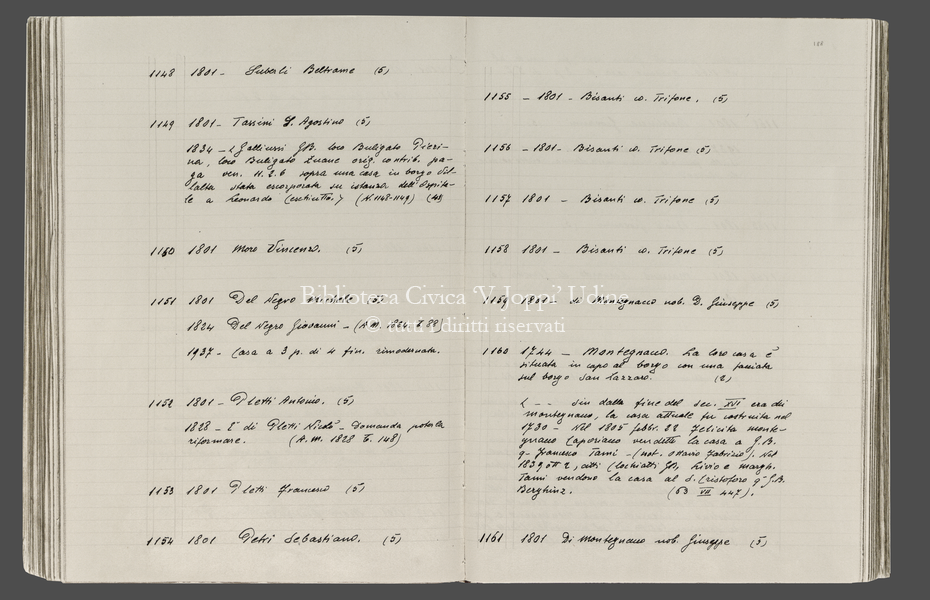 1148 1801 - Suberli Beltrame (5)
1149 1801 - Tassini S. Agostino (5)
1834 - < Galliussi GB. loro Buligato Pieri-
na, loro Buligato Zuane orig. contrib. pa-
ga ven. H. 2.6 sopra una casa in borgo Vil-
lalta stata escorporata su istanza dell'Ospita-
le a Leonardo (N. 1148-1149) (48)
1160 1801 Moro Vincenzo. (5)
1151 1801 Del Negro (5)
1824 Del Negro Giovanni - (A.M. 1824 88)
1937 - Casa a 3 p. di 4 fin. rimodernata.
1152 1801 - Pletti Antonio. (5)
1828 - E' di Pletti Nicolò - Domanda poterla
riformare. (A.M. 1828 T. 148)
1153 1801 Pletti Francesco (5)
1154 1801 Petri Sebastiano. (5)
188
1155 - 1801 - Bisanti co. Trifone. (5)
1156 - 1801 - Bisanti co. Trifone (5)
1157 1801 - Bisanti co. Trifone (5)
1158 1801 - Bisanti co. Trifone (5)
1159 1801 - di Montegnacco nob. D. Giuseppe (5)
1160 1744 - Montegnacco. La loro casa è
situata in capo al borgo con una faciata
sul borgo San Lazzaro. (2)
< - - Sin dalla fine del sec. XVI era dei
montegnano, la casa attuale fu costruita nel
1730 - Nel 1805 febbr. 22 Felicita monte-
gnano Caporiano vendette la casa a G.B.
q- Francesco Tami - (not. Ottavio Fabrizio). Nel
1839 ott 2, citti Clochiatti GB, Livio e Margh.
Tami vendono la casa al S. Cristoforo q- G.B.
Berghinz. (53 VII 447).
1161 1801 Di Montegnacco nob. Giuseppe (5)
Biblioteca Civica 'V. Joppi' Udine
© tutti i diritti riservati